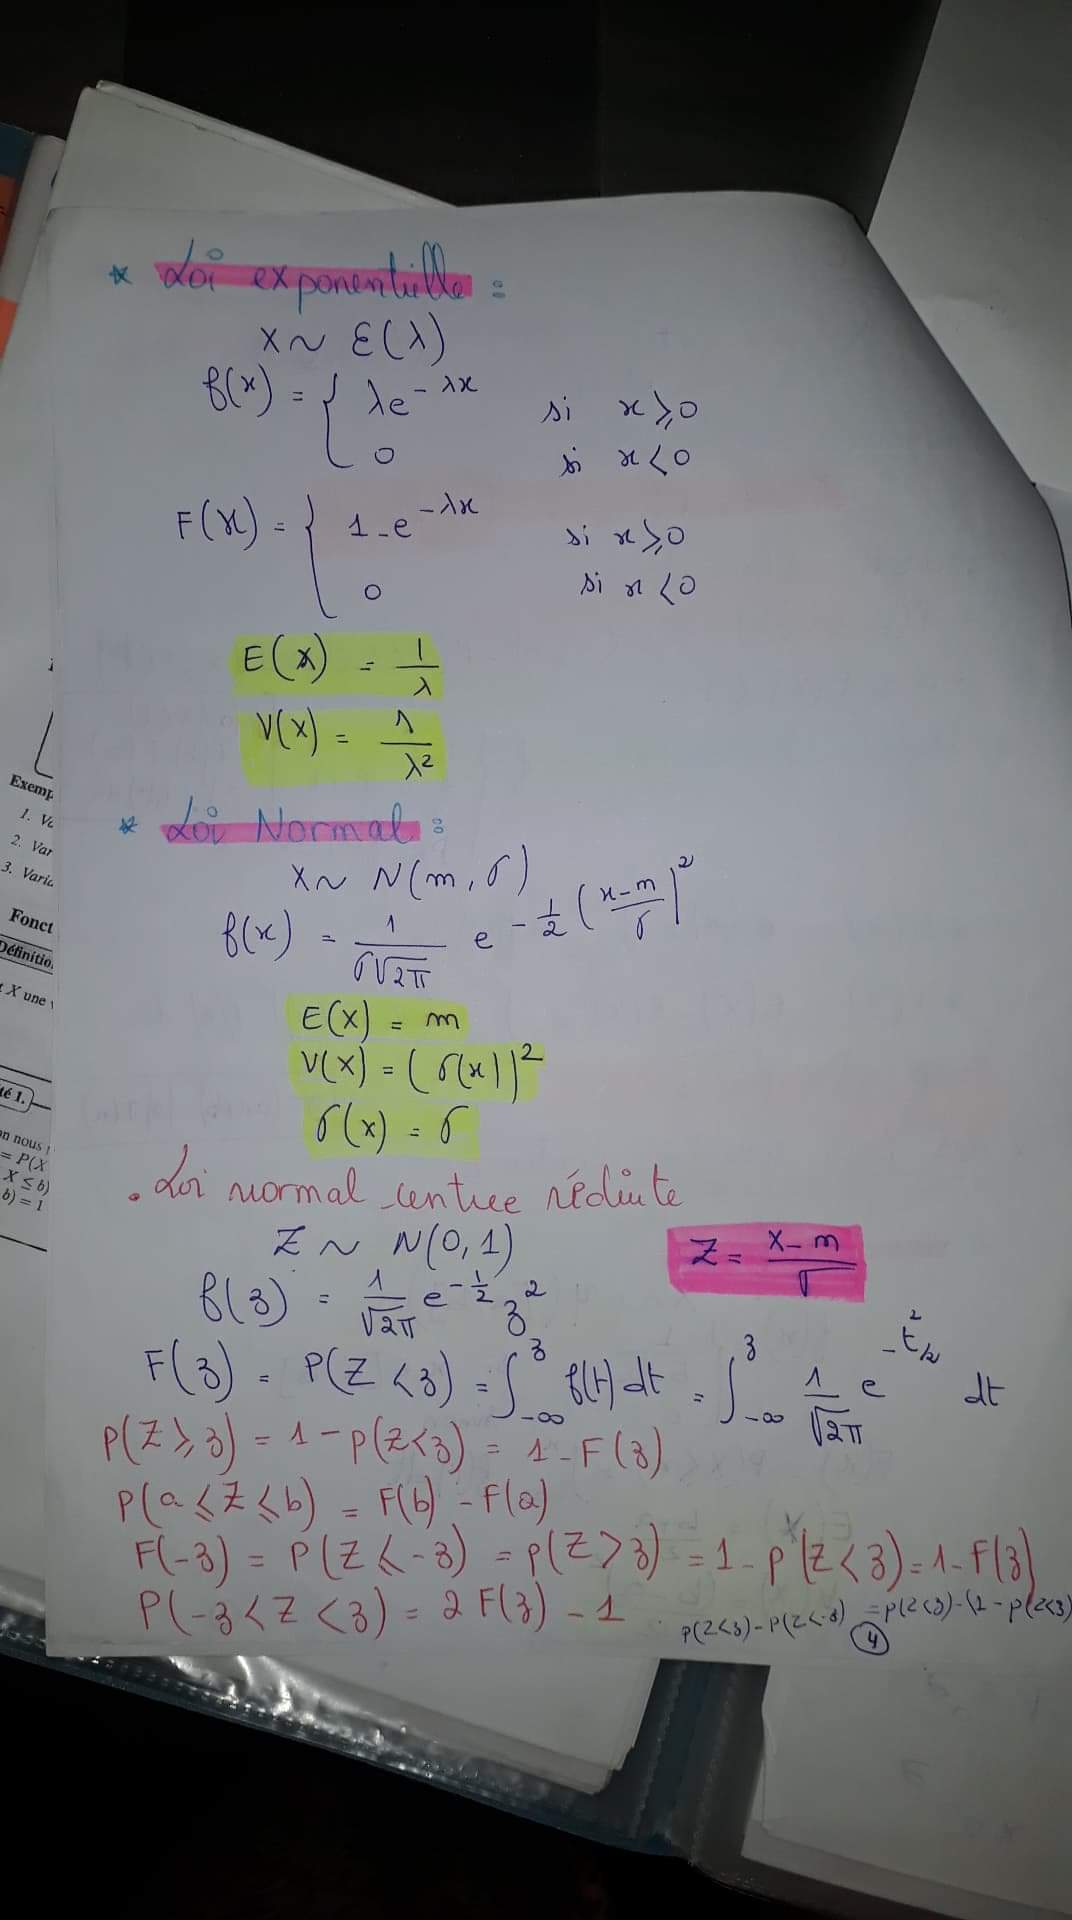 * Loi exponentielle :
X ~ ε(λ)
f(x) = { λe^{-λx} si x ≥ 0
0 si x < 0
F(x) = { 1 - e^{-λx} si x ≥ 0
0 si x < 0
E(X) = 1/λ
V(X) = 1/λ²
* Loi Normal :
X ~ N(m, σ)
f(x) = 1/(σ√2π) e^{-1/2 ((x-m)/σ)²}
E(X) = m
V(X) = (σ(x))²
σ(x) = σ
. Loi normal centree réduite
Z ~ N(0, 1)
Z = (X - m)/σ
f(z) = 1/√2π e^{-1/2 z²}
F(z) = P(Z < z) = ∫_{-∞}^{z} f(t) dt = ∫_{-∞}^{z} 1/√2π e^{-t²/2} dt
P(Z ≥ z) = 1 - P(Z < z) = 1 - F(z)
P(a ≤ Z ≤ b) = F(b) - F(a)
F(-z) = P(Z < -z) = P(Z > z) = 1 - P(Z < z) = 1 - F(z)
P(-z < Z < z) = 2 F(z) - 1
P(Z<z) - P(Z<-z) = P(Z<z) - (1 - P(Z<z)
4
Exemp
1. Va
2. Var
3. Varia
Fonct
Définitio
X une
té 1.
on nous
= P(X
X ≤ b)
b) = 1